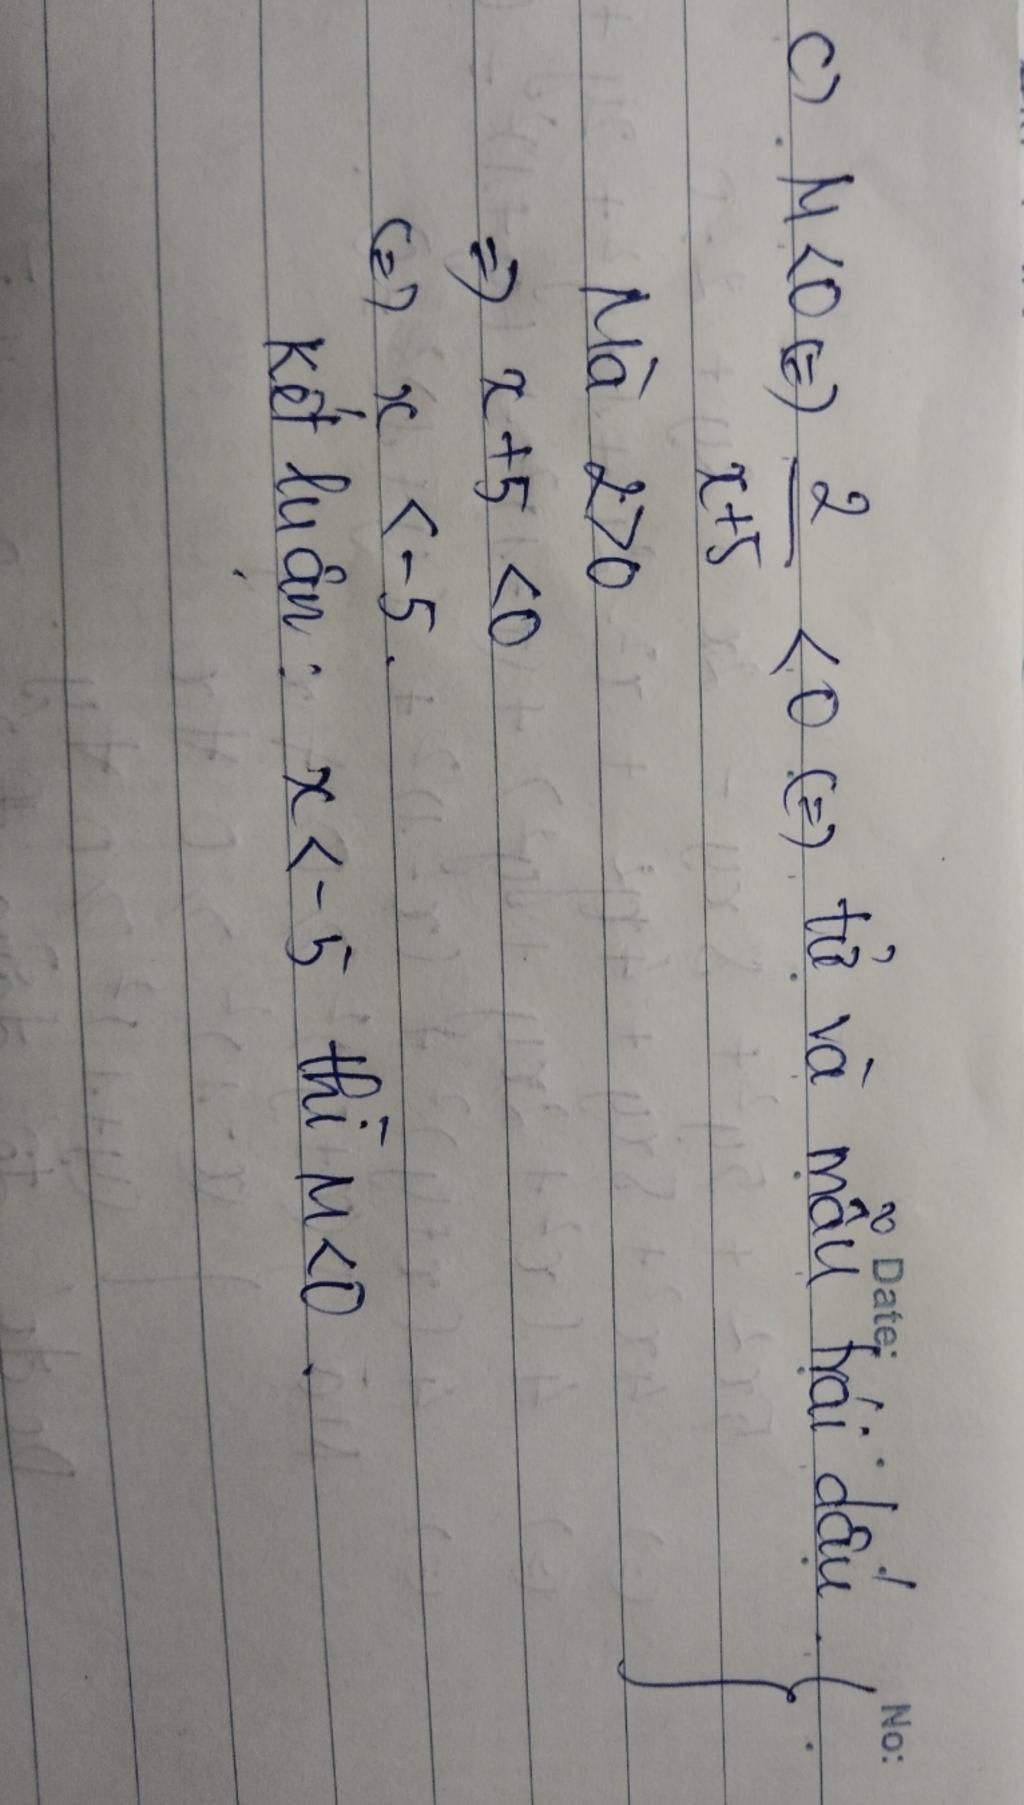 Date: No:
c) M < 0 (=) 2/x+5 < 0 (=) tử và mẫu trái dấu.
Mà 2 > 0
=) x + 5 < 0
(=) x < -5.
Kết luận: x < -5 thì M < 0.